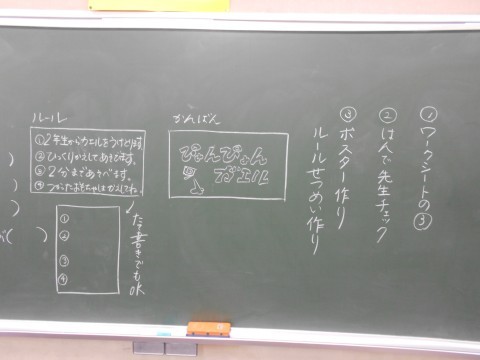 ①ワークシートの③
②はんで先生チェック
③ポスター作り
ルールせつめい作り
かんばん
ぴょんぴょん
ガエル
ルール
①2年生からカエルをうけとります
②ひっくりかえしてあそびます。
③2分まであそべます。
④つかったおもちゃはかえしてね。
①
②
③
④
たて書きでもOK